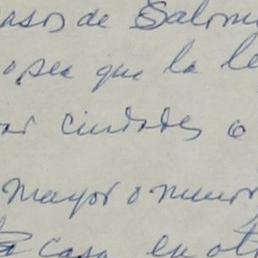 asos de Salom
opea que la le
ar ciudades o
mayor o menor
casa en ot